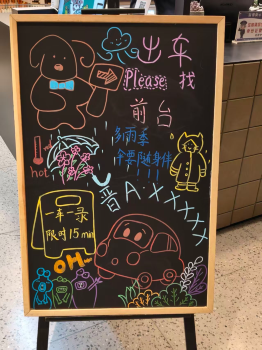 出车
Please 找
前台
多雨季
伞要随身伴
hot
晋A·XXXXX
一车一录
限时15min
OH